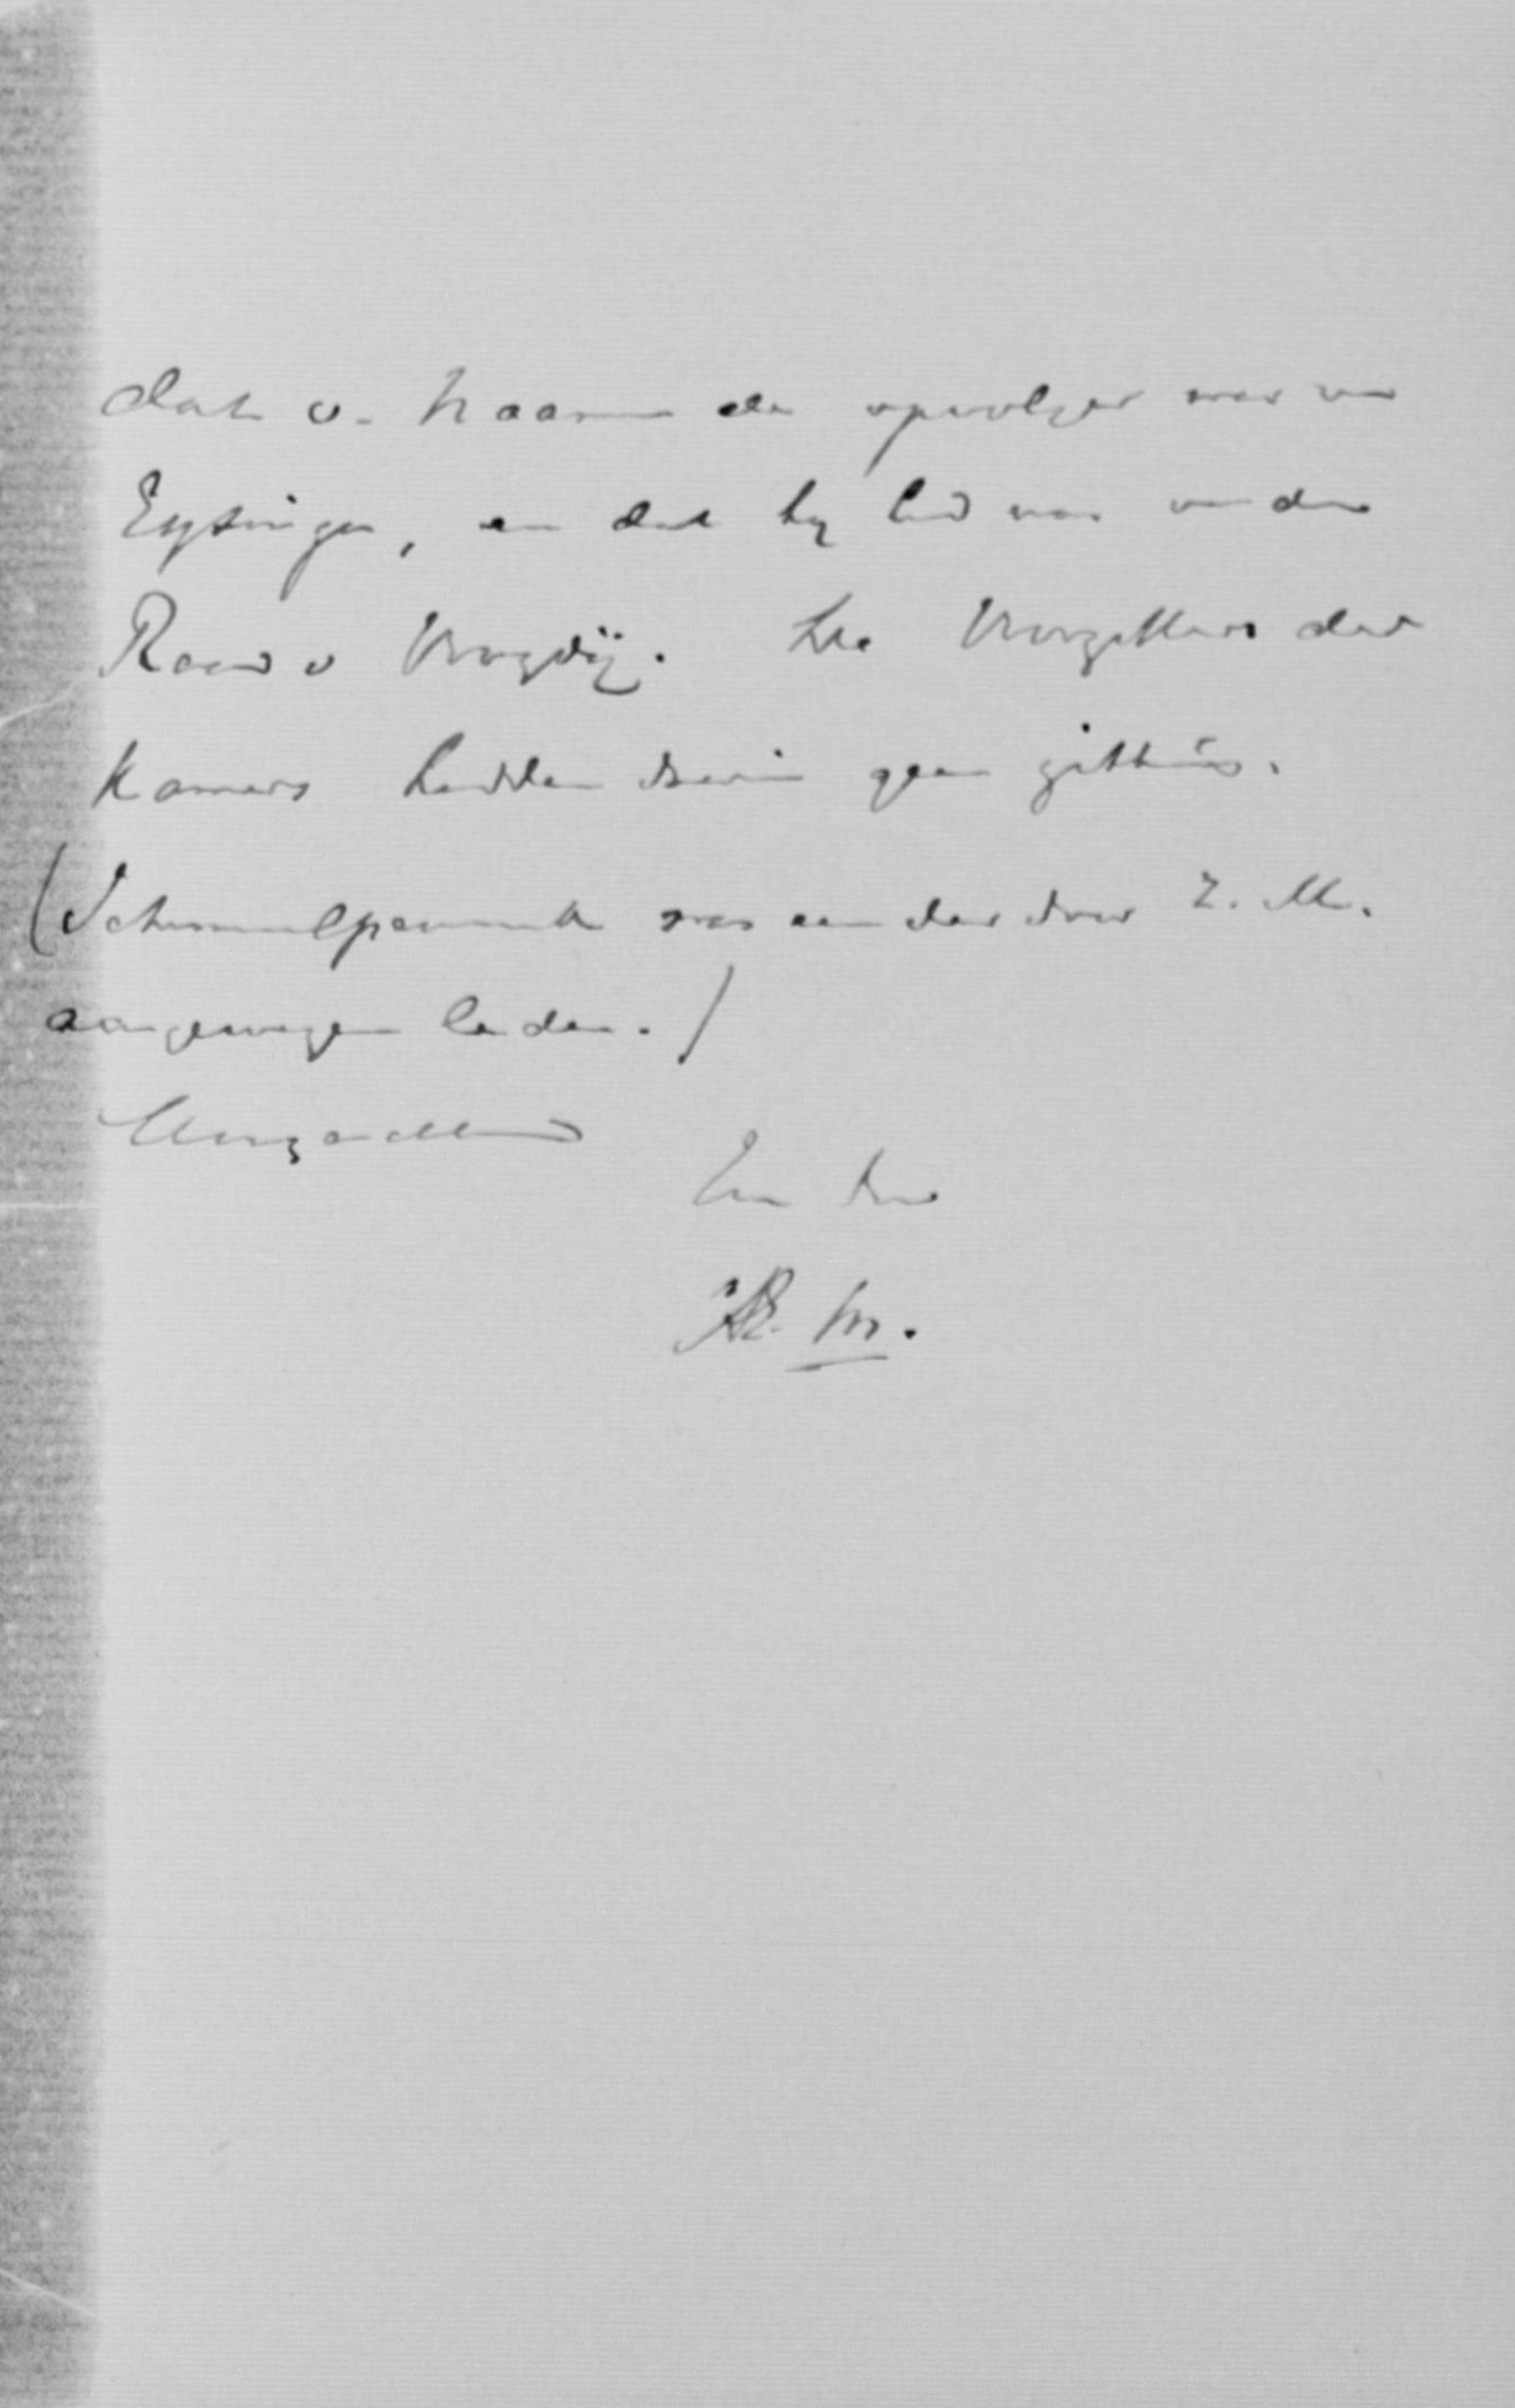 dat v. Naamen de opvolger was van
Eysinga, en dat hy lid was van den
Raad v Voogdij. De Voorzitters der
Kamers hadden daarin geen zitting.
(Schimmelpenninck was een der door Z. M.
aangewezen leden.)
t.